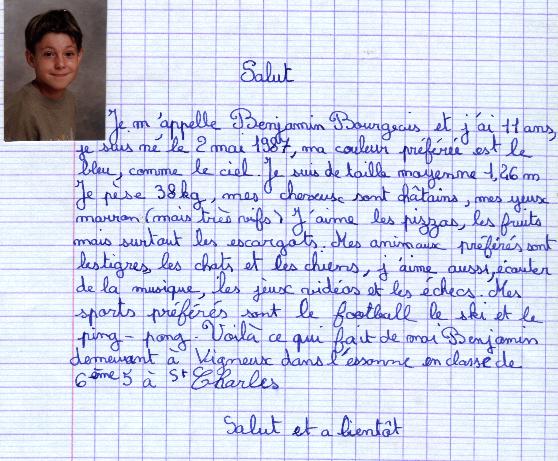 Salut
Je m'appelle Benjamin Bourgeais et j'ai 11 ans,
je suis né le 2 mai 1987, ma couleur préférée est le
bleu, comme le ciel. Je suis de taille moyenne 1,26 m
Je pèse 38 kg, mes cheveux sont châtains, mes yeux
marron (mais très vifs) J'aime les pizzas, les fruits
mais surtout les escargots. Mes animaux préférés sont
les tigres, les chats et les chiens, j'aime aussi, écouter
de la musique, les jeux vidéos et les échecs. Mes
sports préférés sont le football le ski et le
ping-pong. Voilà ce qui fait de moi Benjamin
demeurant à Vigneux dans l'éssonne en classe de
6ème 5 à St Charles
Salut et a bientôt